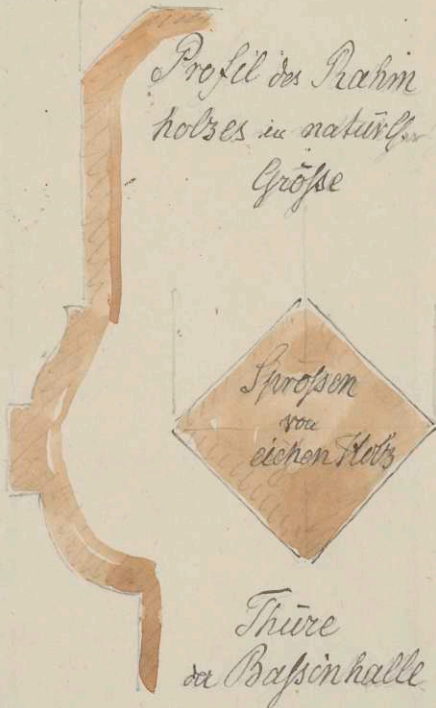 Profil des Rahm
holzes in natürlicher
Größe
Sproßen
von
eichen Holz
Thüre
der Baßinhalle